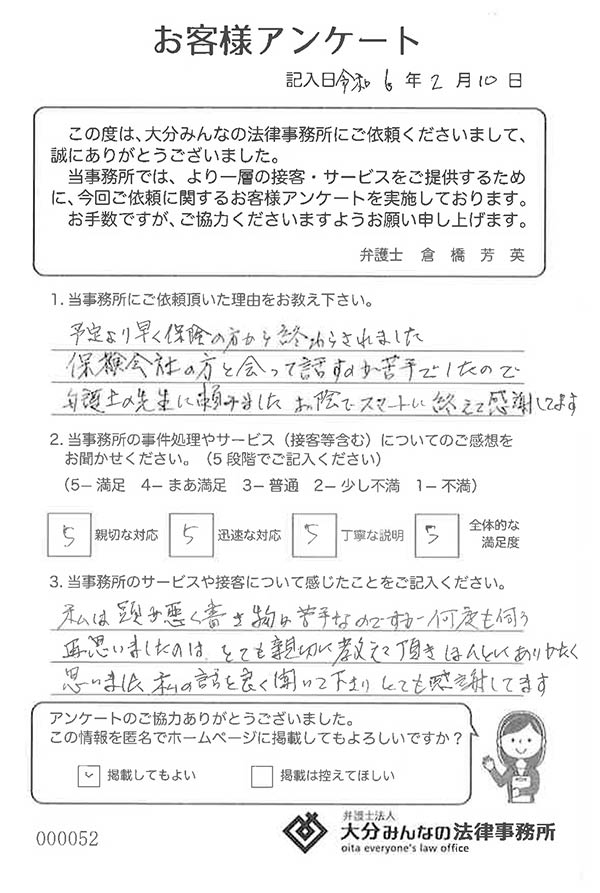 お客様アンケート
記入日令和6年2月10日
この度は、大分みんなの法律事務所にご依頼くださいまして、
誠にありがとうございました。
当事務所では、より一層の接客・サービスをご提供するため
に、今回ご依頼に関するお客様アンケートを実施しております。
お手数ですが、ご協力くださいますようお願い申し上げます。
弁護士 倉橋芳英
1. 当事務所にご依頼頂いた理由をお教え下さい。
予定より早く保険の方から終わらされました
保険会社の方と会って話すのが苦手でしたので
弁護士の先生に頼みました お陰でスマートに終えて感謝してます
2. 当事務所の事件処理やサービス（接客等含む）についてのご感想を
お聞かせください。（5段階でご記入ください）
（5－満足 4－まあ満足 3－普通 2－少し不満 1－不満）
5 親切な対応 5 迅速な対応 5 丁寧な説明 5 全体的な
満足度
3. 当事務所のサービスや接客について感じたことをご記入ください。
私は頭が悪く書き物が苦手なのですが何度も伺う
思いましたのは、とても親切に教えて頂きほんとにありがたく
思いました 私の話を良く聞いて下さりとても感謝してます
アンケートのご協力ありがとうございました。
この情報を匿名でホームページに掲載してもよろしいですか？
掲載してもよい 掲載は控えてほしい
弁護士法人
大分みんなの法律事務所
oita everyone's law office
000052